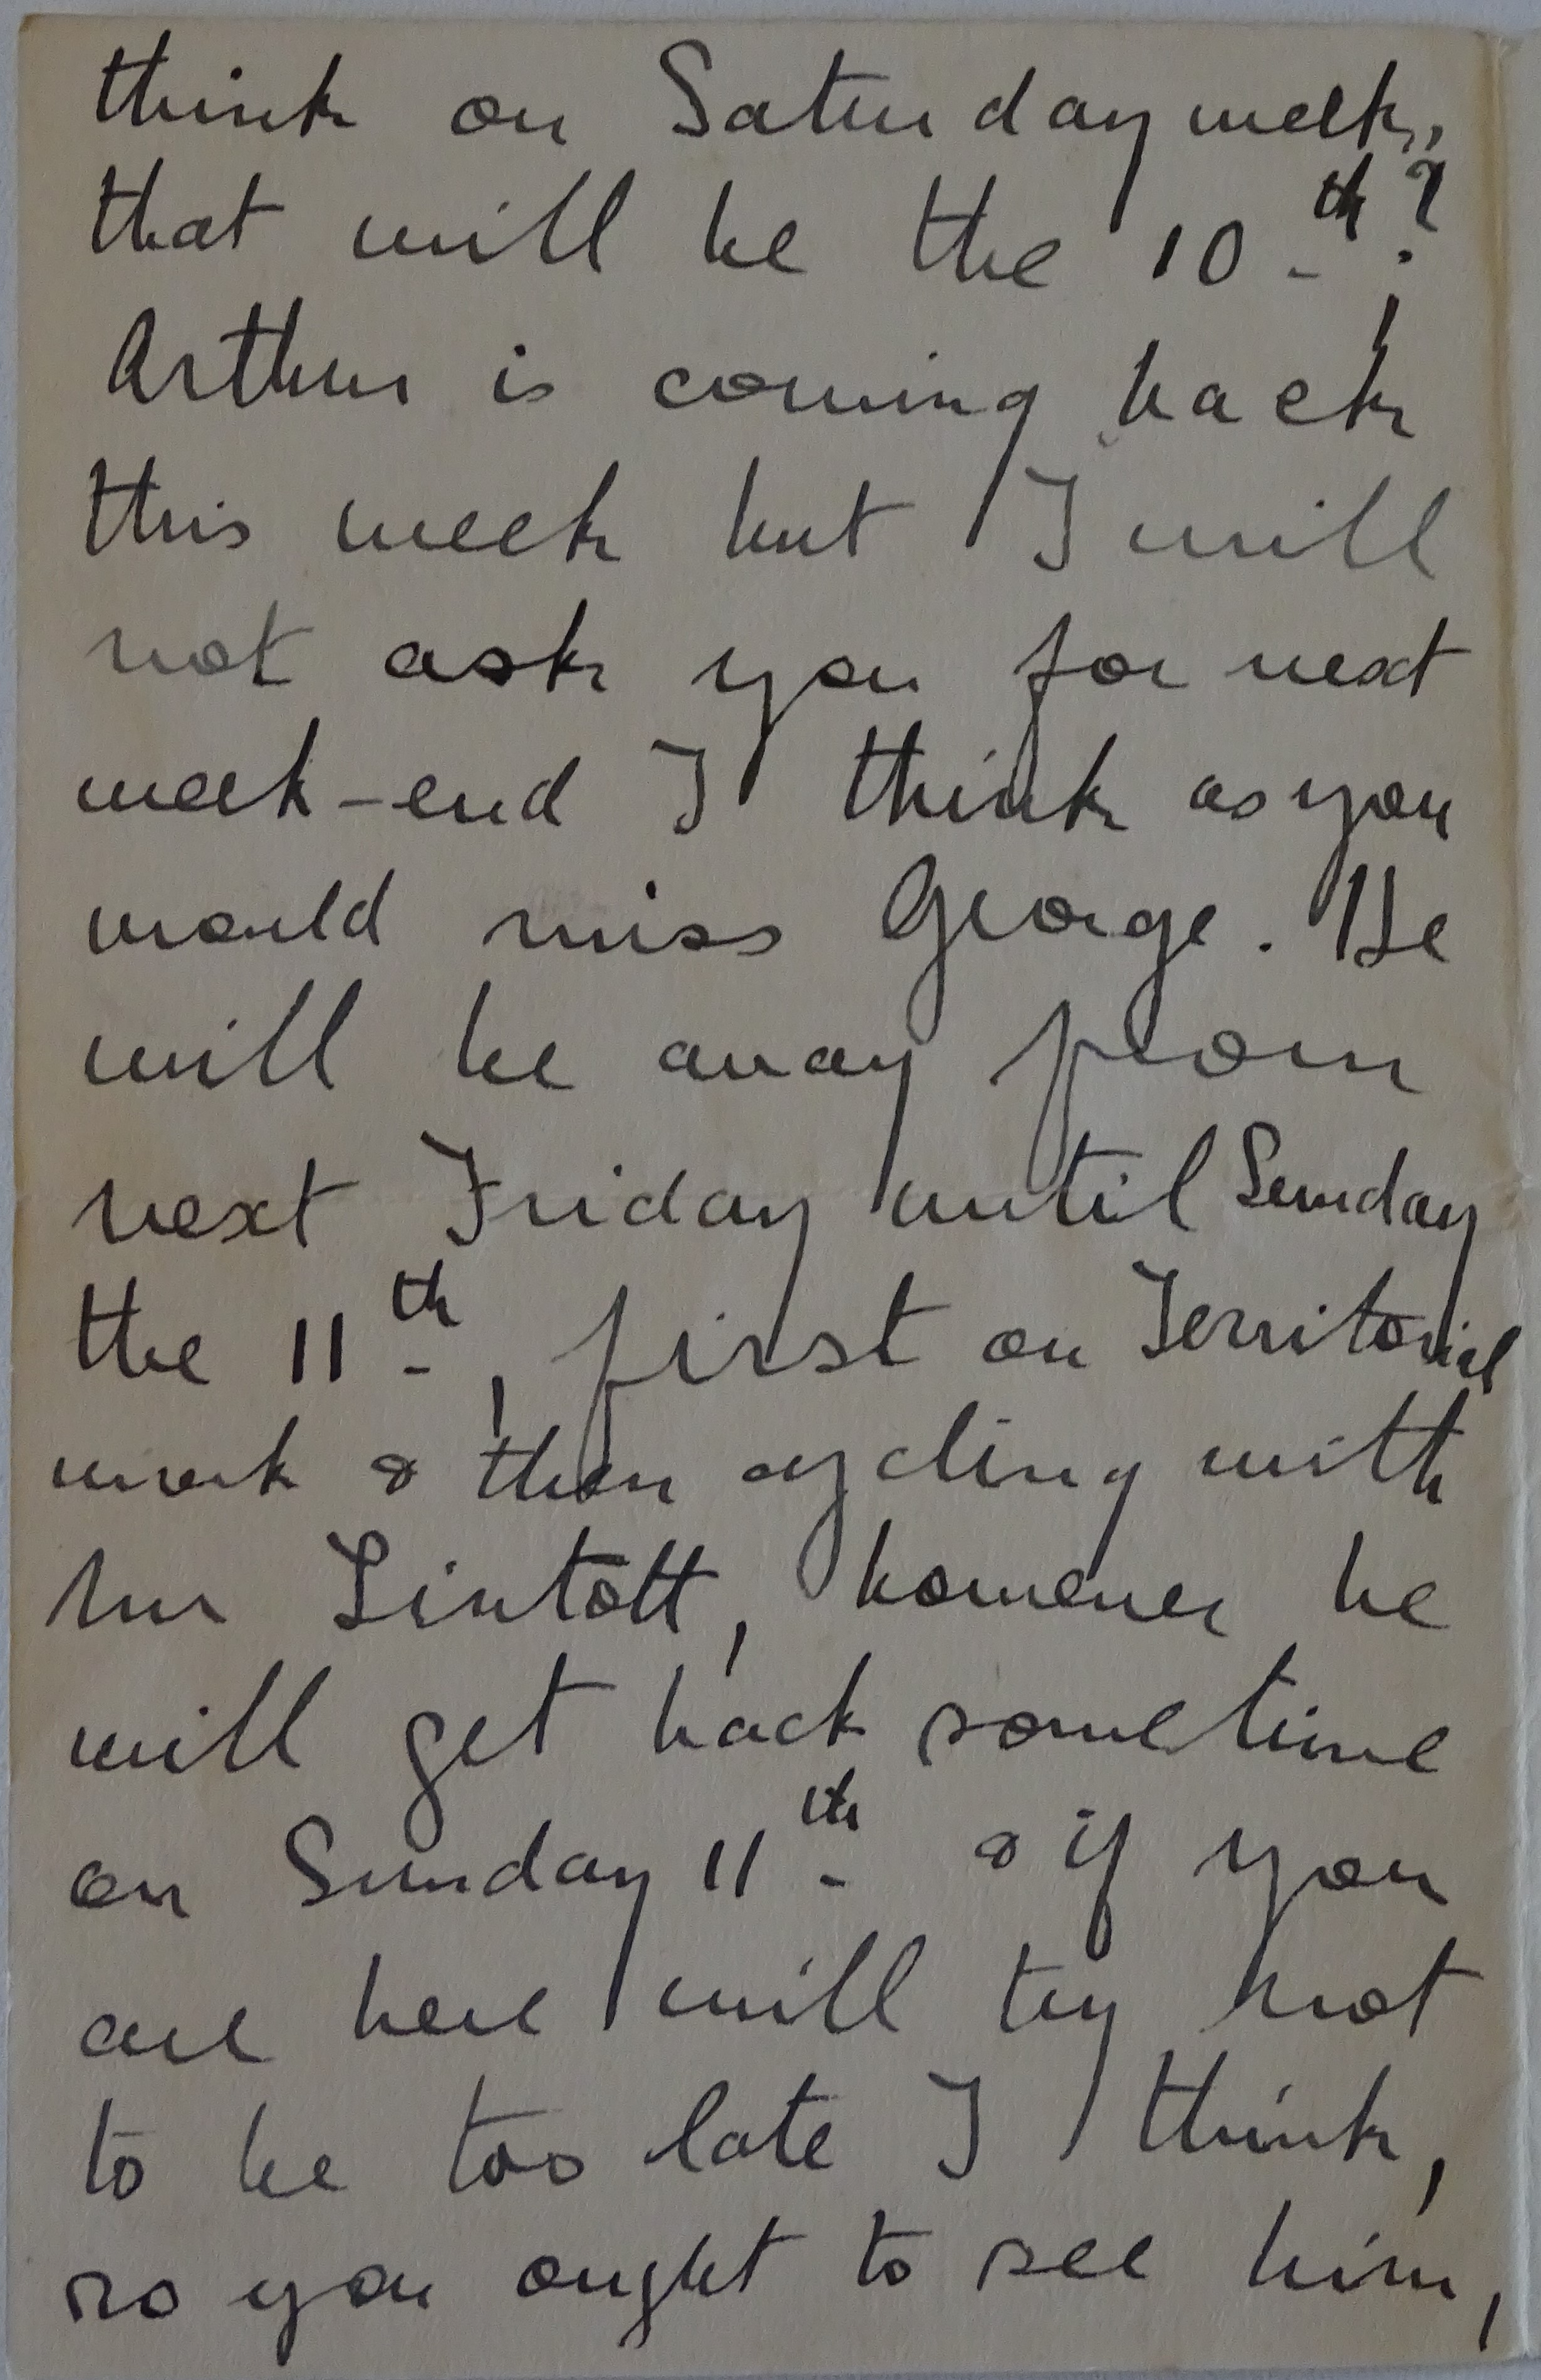 think on Saturday week,
that will be the 10th?
Arthur is coming back
this week but I will
not ask you for next
week-end I think as you
would miss George. He
will be away from
next Friday until Sunday
the 11th, first on Territorial
work & then cycling with
Mr Lintott, however he
will get back sometime
on Sunday 11th & if you
are here will try not
to be too late I think,
so you ought to see him,